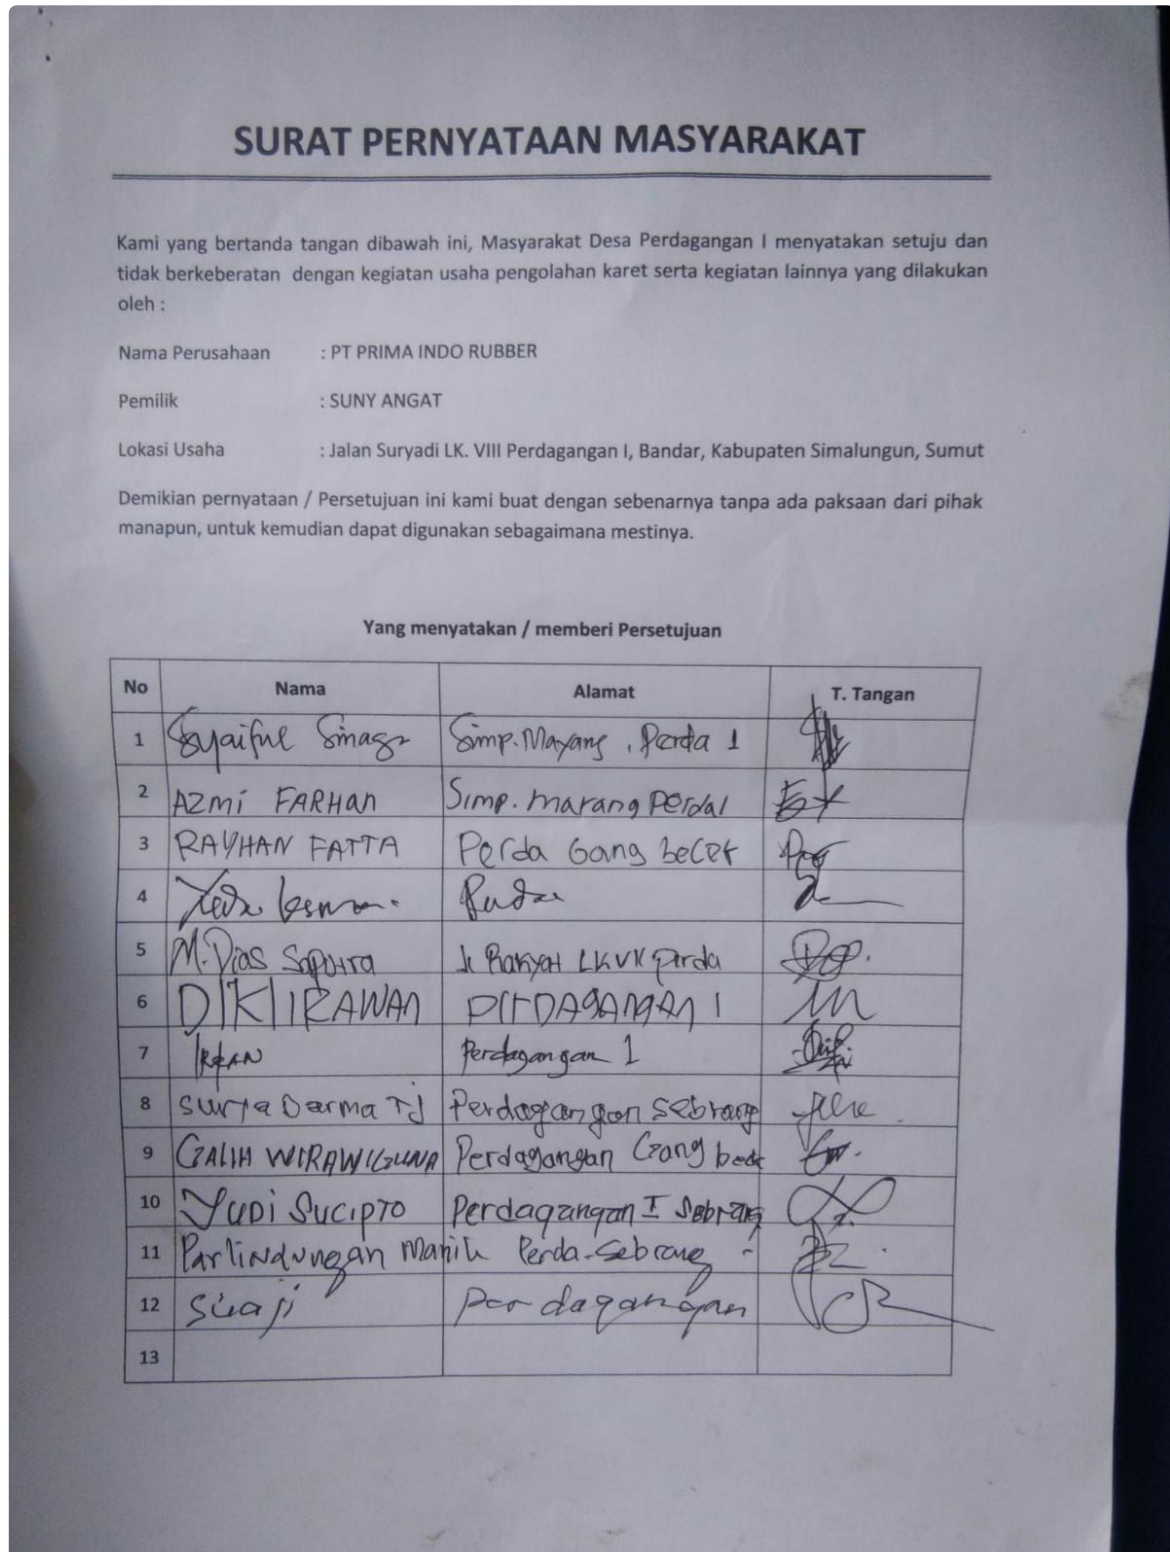 SURAT PERNYATAAN MASYARAKAT
Kami yang bertanda tangan dibawah ini, Masyarakat Desa Perdagangan I menyatakan setuju dan
tidak berkeberatan dengan kegiatan usaha pengolahan karet serta kegiatan lainnya yang dilakukan
oleh :
Nama Perusahaan : PT PRIMA INDO RUBBER
Pemilik : SUNY ANGAT
Lokasi Usaha : Jalan Suryadi LK. VIII Perdagangan I, Bandar, Kabupaten Simalungun, Sumut
Demikian pernyataan / Persetujuan ini kami buat dengan sebenarnya tanpa ada paksaan dari pihak
manapun, untuk kemudian dapat digunakan sebagaimana mestinya.
Yang menyatakan / memberi Persetujuan
No Nama Alamat T. Tangan
1 Syaiful Sinaga Simp. Mayang, Perda 1
2 AZMI FARHAN Simp. marang Perda1
3 RAYHAN FATTA Perda Gang becek
4
5 M. Dias Saputra Jl Rakyat perda
6 DIKI IRAWAN PERDAGANGAN 1
7 Perdagangan 1
8 Surya Darma TJ Perdagangan sebrang
9 GALIH WIRAWIGUNA Perdagangan Gang
10 YUDI SUCIPTO Perdagangan I Sebrang
11 Parlindungan Manik Perda-Sebrang
12 Perdagangan
13